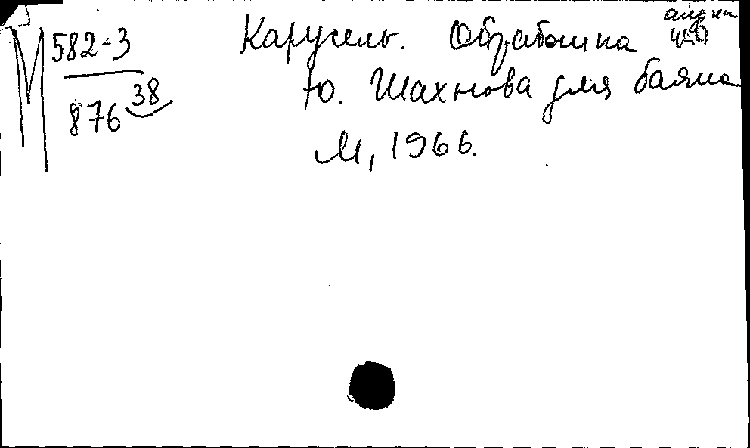 М 582-3
876 38
Карусель. Обработка
Ю. Шахнова для баяна
М, 1966.